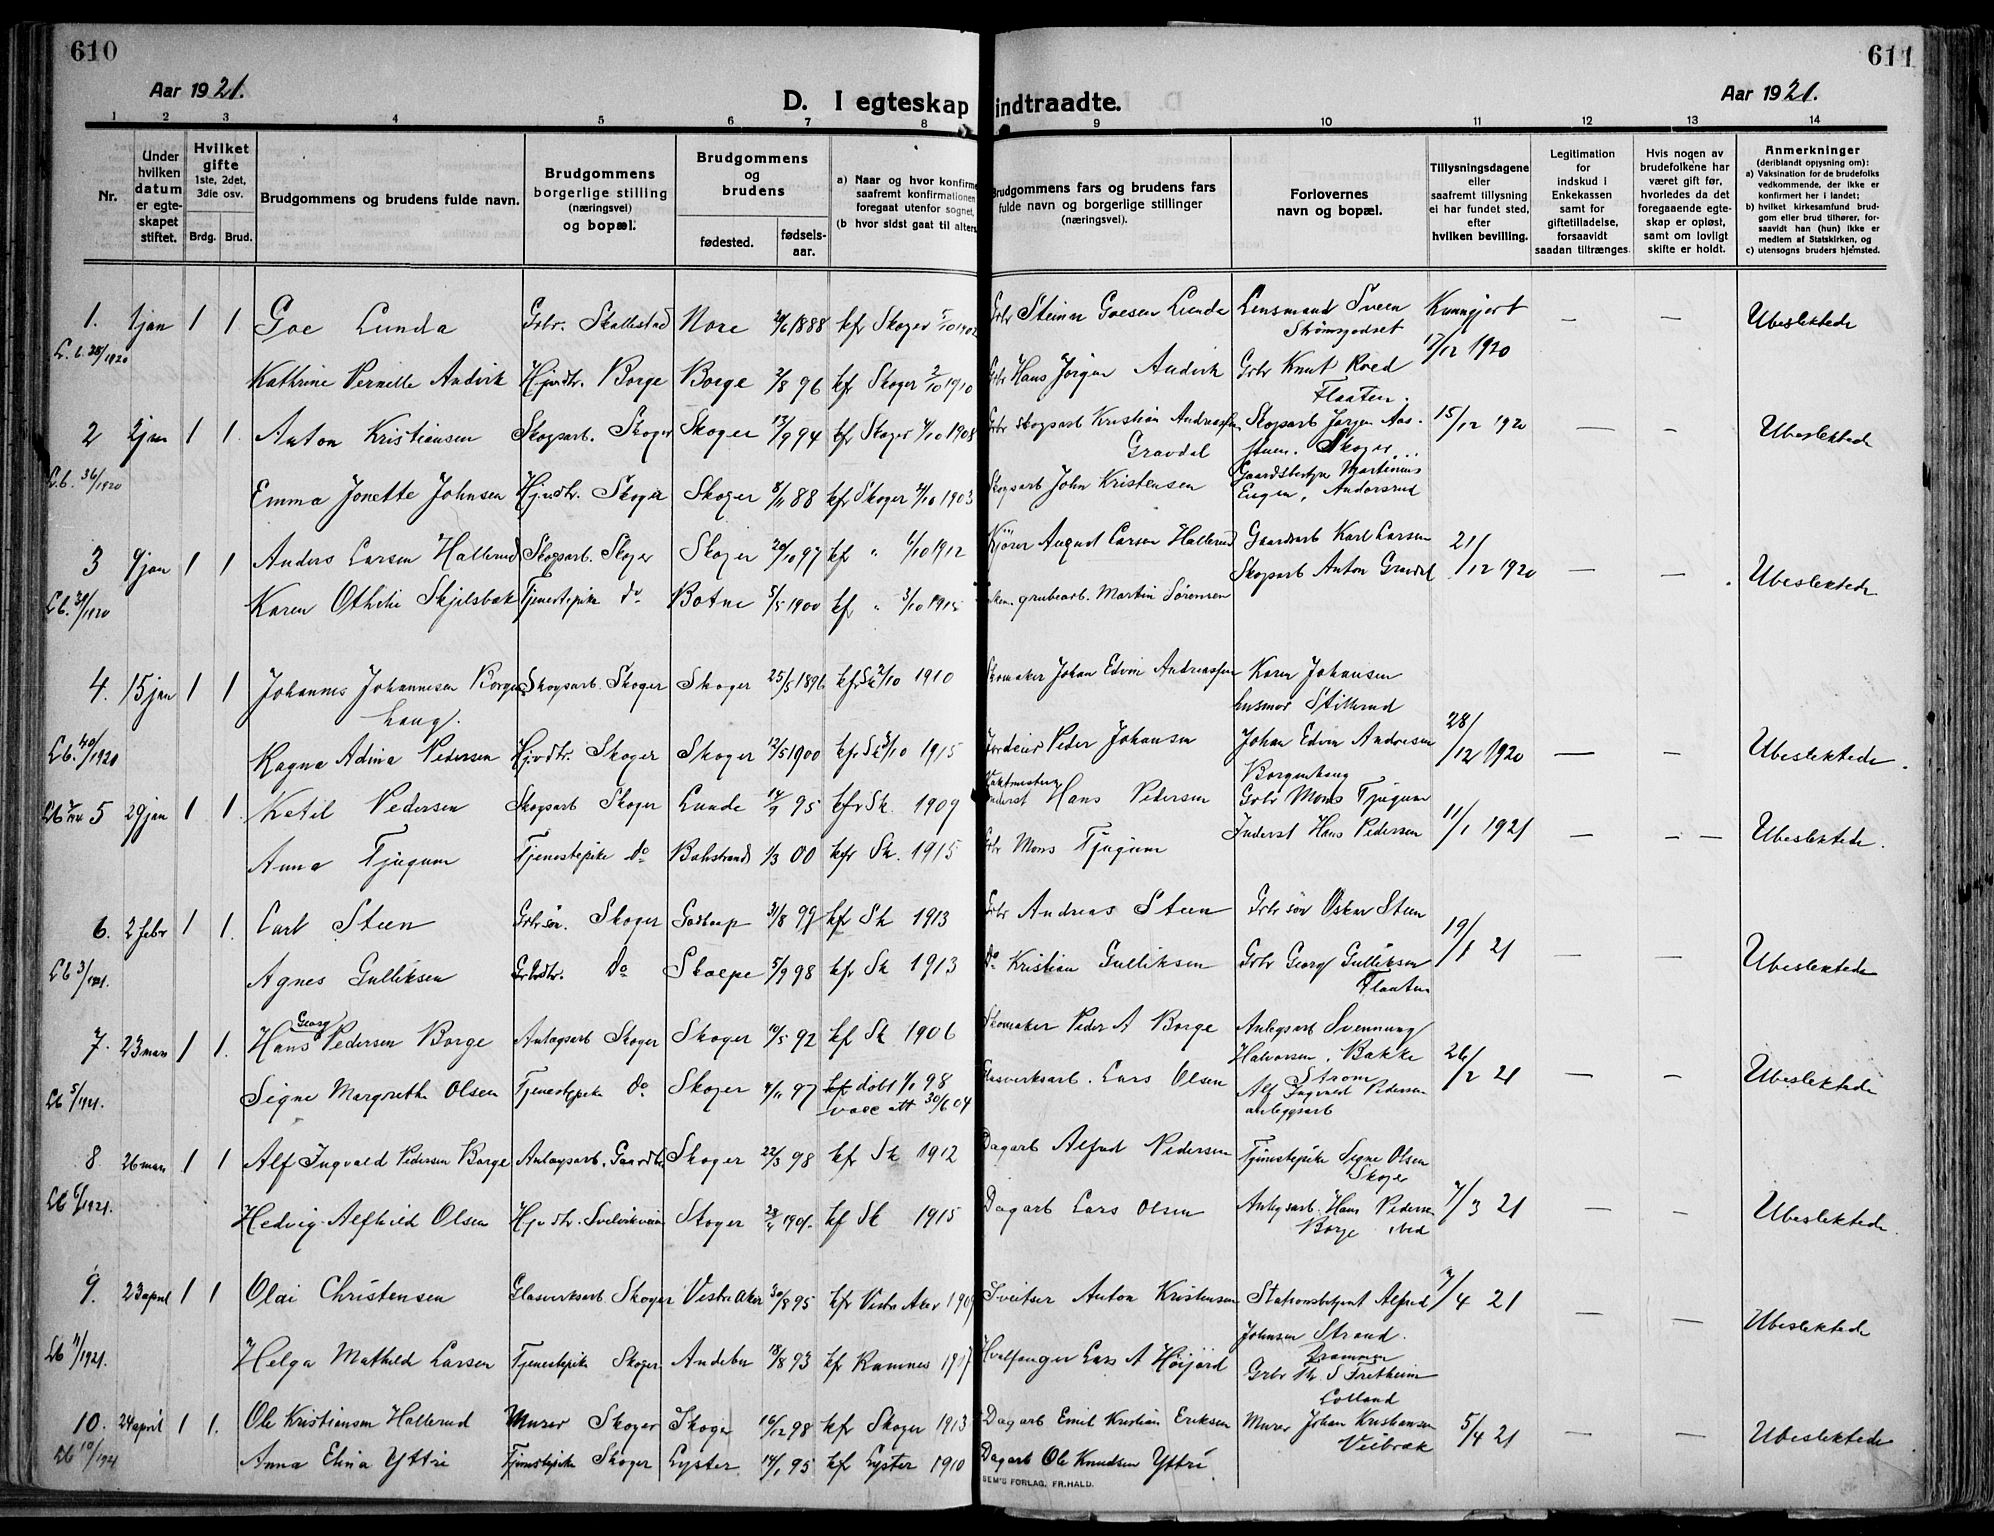 610
611
Aar 1921.
D. I egteskap indtraadte.
Aar 1921.
1 2 3 4 5 6 7 8 9 10 11 12 13 14
Nr.
Under hvilken datum er egte-skapet stiftet.
Hvilket gifte
1ste, 2det, 3die osv.
Brdg. Brud.
Brudgommens og brudens fulde navn.
Brudgommens borgerlige stilling (næringsvei) og bopæl.
Brudgommens og brudens
fødested. fødsels-aar.
a) Naar og hvor konfirme
saafremt konfirmationen
foregaat utenfor sognet,
(b hvor sidst gaat til alters.
Brudgommens fars og brudens fars
fulde navn og borgerlige stillinger
(næringsvei).
Forlovernes
navn og bopæl.
Tillysningsdagene
eller
saafremt tillysning
ei har fundet sted,
efter
hvilken bevilling.
Legitimation
for
indskud i
Enkekassen
samt for
giftetilladelse,
forsaavidt
saadan tiltrænges.
Hvis nogen av
brudefolkene har
været gift før,
hvorledes da det
foregaaende egte-
skap er opløst,
samt om lovligt
skifte er holdt.
Anmerkninger
(deriblandt opysning om):
a) Vaksination for de brudefolks
vedkommende, der ikke er
konfirmert her i landet;
b) hvilket kirkesamfund brud-
gom eller brud tilhører, for-
saavidt han (hun) ikke er
medlem af Statskirken, og
c) utensogns bruders hjemsted.
1. 1 jan 1 1. Goe Lunda Grbr. Skallestad Nore 1888 kf Skoger 5/10 1902 Grbr Steinar Goesen Lunda Lensmand Sveen Kunngjort — — Ubeslektede
Strømsgodset
L.b. 28/1920
17/12 1920
Kathrine Pernille Andvik Hjvdtr. Borge Borge 2/8 96 kf Skoger 2/10 1910 Grbr Hans Jørgen Andvik Grbr Knut Roed
Flaaten.
2 2 jan 1 1. Anton Kristiansen Skogsarb. Skoger Skoger 13/9 94 kf Skoger 4/10 1908 Grbr skogsarb Kristian Andreassen Skogsarb Jørgen Aas- 15/12 1920 — — Ubeslektede
Gravdal stuen. Skoger
L.b. 36/1920
Emma Jonette Johnsen Hjvdtr. Skoger Skoger 8/11 88 kf Skoger 4/10 1903 Skogsarb John Kristensen Gaardsbestyr Martinius
Engen, Andorsrud
3 9 jan 1 1 Anders Larsen Hallerud Skogsarb. Skoger Skoger 20/10 97 kf " 6/10 1912 Kjører August Larsen Hallerud Gaardsarb Karl Larsen 21/12 1920 — — Ubeslektede
L.b. 38/1920 Karen Othelie Skjelsbæk Tjenestepike do Botne 3/5 1900 kf " 3/10 1915 grubearb. Martin Sørensen Skogsarb Anton Gravdal
4. 15 jan 1 1 Johannes Johannesen Borgen Skogsarb. Skoger Skoger 25/5 1896 kfr Sk 2/10 1910 Skomaker Johan Edvin Andreassen Karen Johansen
haug. Husmor Stillerud
L.b. 40/1920 Ragna Adina Pedersen Hjvdtr. Skoger Skoger 12/5 1900 kfr Sk 3/10 1915 Jordeier Peder Johansen Johan Edvin Andresen 28/12 1920 — — Ubeslektede
Borgenhaug
Lb 5 29 jan 1 1. Ketil Pedersen Skogsarb Skoger Lunde 14/9 95 kfr Sk. 1909 Vaktmester Inderst Hans Pedersen Grbr Mons Tjugum 11/1 1921 — — Ubeslektede.
Anna Tjugum Tjenestepike do Balestrand 1/3 00 kfr Sk. 1915 Grbr Mons Tjugum Inderst Hans Pedersen
6. 2 febr 1 1. Carl Steen Grbrsøn. Skoger 31/8 99 kf Sk 1913 Grbr Andreas Steen Grbr søn Oskar Steen 19/1 21 — — Ubeslektede
Lb 3/1921. Agnes Gulliksen Grbrdtr. do 5/9 98 kfr Sk 1913 Do Kristian Gulliksen Grbr Georg Gulliksen
Flaaten
7. 23 mars 1 1. Hans Georg Pedersen Borge Anlægsarb Skoger Skoger 10/5 92 kf Sk 1906 Skomaker Peder A Borge Anlegsarb Svennung
Halvorsen. Bakke 26/2 21 — — Ubeslektede
Strøm
Lb 5/1921. Signe Margrethe Olsen Tjenestepike do Skoger 4/11 97 kf døbt 1/1 98 Glasverksarb. Lars Olsen Alf Ingvald Pedersen
vacc att 30/6 04 anleggsarb
8. 26 mars 1 1 Alf Ingvald Pedersen Borge Anlægsarb. Skoger 22/3 98 kfr Sk 1912 Dagarb Alfred Pedersen Tjenestepike Signe Olsen
Skoger
Lb 6/1921. Hedvig Alfhild Olsen Hjvdtr. Svelvikveien Skoger kf Sk 1915 Dagarb Lars Olsen Anlegsarb. Hans Pedersen 7/3 21 — — Ubeslektede.
Borge
9. 23 april 1 1 Olai Christensen Glasverksarb Skoger Vestre Aker 30/8 95 kfr Vestre Aker 1909 Sveitser Anton Kristensen Stationsbetjent Alfred 7/4 21 — — Ubeslektede
Johnsen Strand.
Drammen
Lb 9/1921. Helga Mathilde Larsen Tjenestepike Skoger Andebu 18/8 93 kfr Ramnes 1907 Hvalfanger Lars A Høijord Grbr Th S Fretheim
Lolland
10. 24 april 1 1. Ole Kristiansen Hallerud Murer Skoger Skoger 16/12 98 kfr Skoger 1913 Dagarb Emil Kristian Eriksen Murer Johan Kristiansen 5/4 21 — — Ubeslektede.
Veibræk
Lb 10/1921 Anna Elina Yttri Tjenestepike Skoger Lyster 14/1 95 kf Lyster 1910 Dagarb Ole Knudsen Yttri
SEM'S FORLAG, FR.HALD.